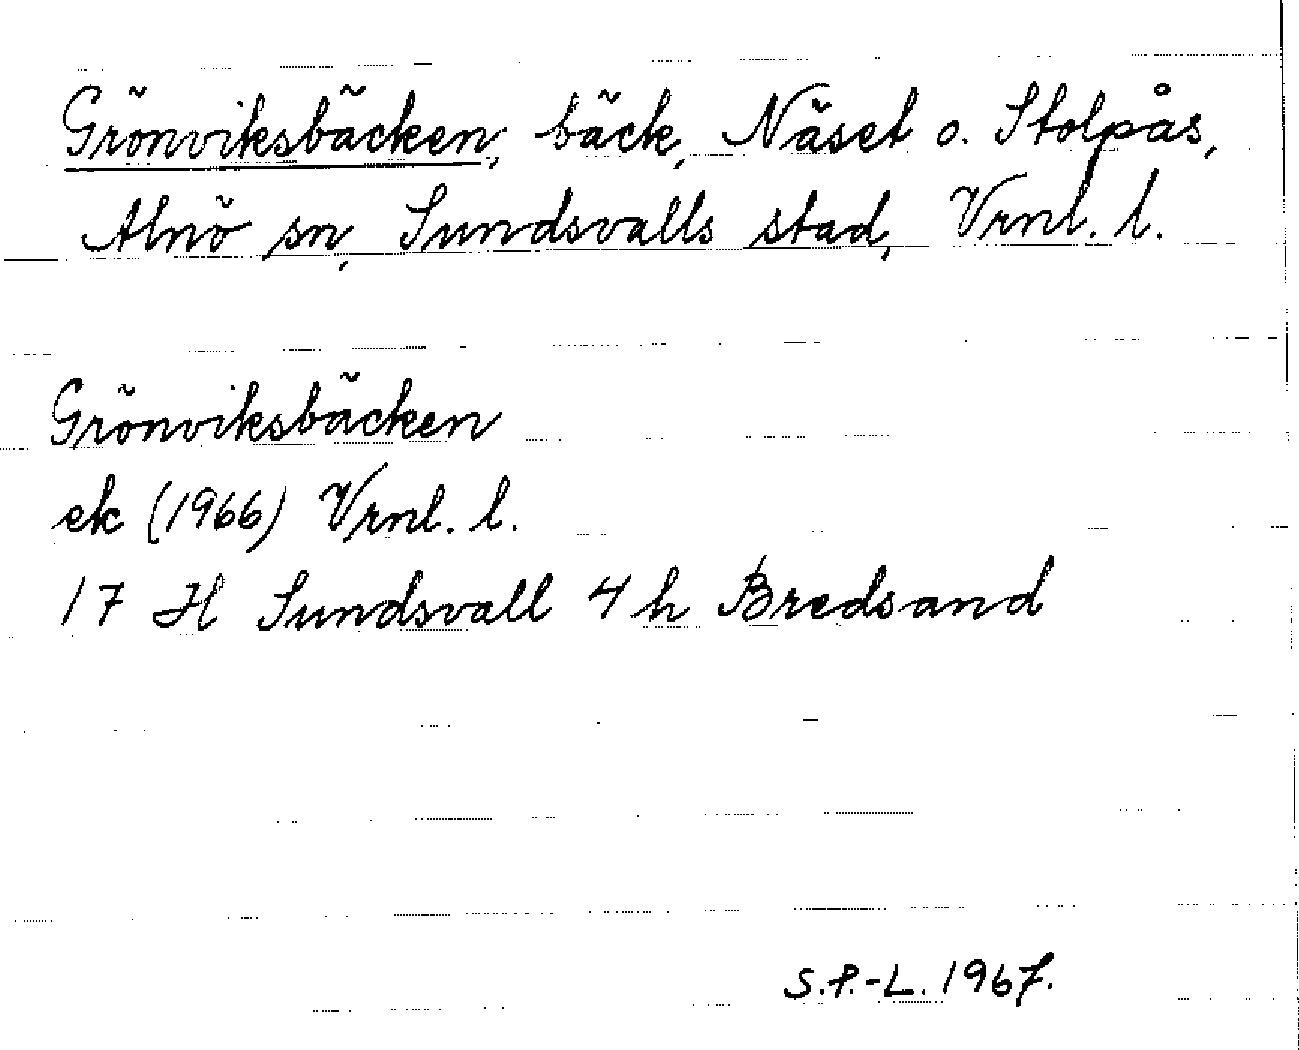 Grönviksbäcken, bäck, Näset o. Stolpås,
Alnö sn, Sundsvalls stad, Vrnl. l.
Grönviksbäcken
ek (1966) Vrnl. l.
17 H Sundsvall 4 h Bredsand
S.P.-L. 1967.